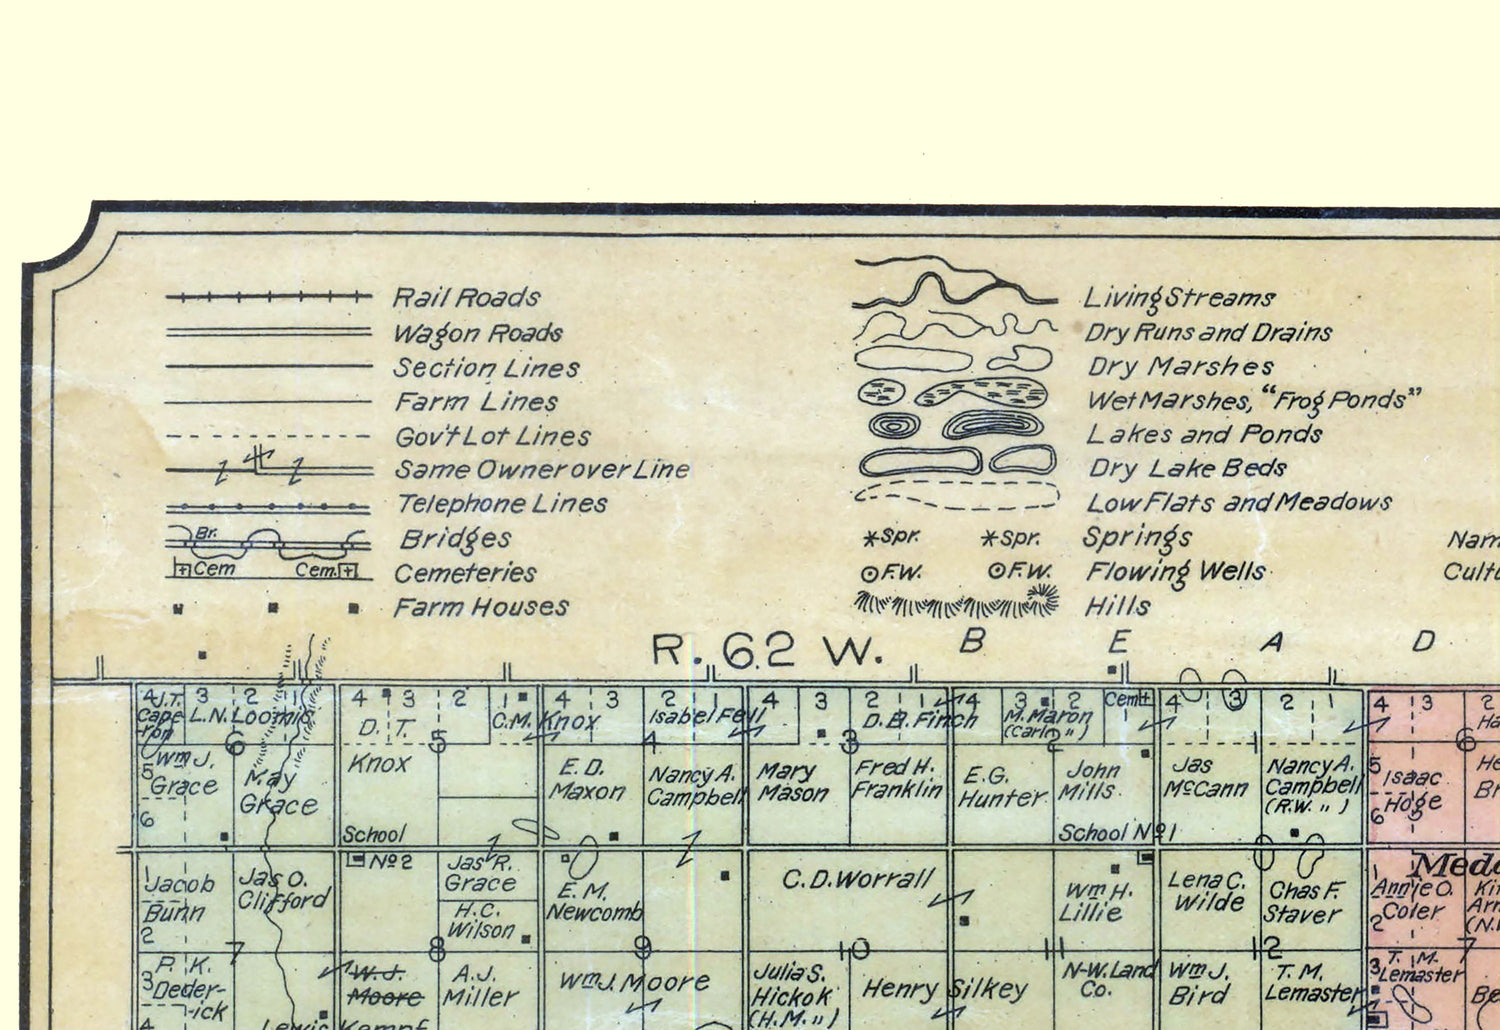 Rail Roads
Wagon Roads
Section Lines
Farm Lines
Gov't Lot Lines
Same Owner over Line
Telephone Lines
Br.
Bridges
Cem Cem.
Cemeteries
Farm Houses
Living Streams
Dry Runs and Drains
Dry Marshes
Wet Marshes, "Frog Ponds"
Lakes and Ponds
Dry Lake Beds
Low Flats and Meadows
*Spr. *Spr. Springs
F.W. F.W. Flowing Wells
Hills
Nam
Cultu
R. 62 W.
B E A D
4 3 2
J.T.
Cape
-ron
L.N. Loomis
6
Wm J.
Grace
5
6
May
Grace
4 3 2 1
D. T.
Knox
5
C.M. Knox
School
No 2
4 3 2 1
Isabel Fell
4
E. D.
Maxon
Nancy A.
Campbell
4 3 2 1
D. B. Finch
3
Mary
Mason
Fred H.
Franklin
4 3 2
Cem
M. Maron
(Carln ")
2
E.G.
Hunter
John
Mills
School No 1
4 3 2 1
1
Jas
McCann
Nancy A.
Campbell
(R.W. " )
4 3 2
Ha
6
5
Isaac
Hoge
6
He
Br
Jacob
Bunn
1
2
Jas O.
Clifford
7
P. K.
Deder-
-ick
3
4
Lewis Kempf
Jas R.
Grace
H.C.
Wilson
8
W.J.
Moore
A.J.
Miller
E. M.
Newcomb
9
Wm J. Moore
C.D. Worrall
10
Julia S.
Hickok
(H.M. ")
Henry Silkey
Wm H.
Lillie
11
N-W. Land
Co.
Lena C.
Wilde
Chas F.
Staver
12
Wm J.
Bird
T. M.
Lemaster
Medo
1
Annie O.
Coler
2
Kir
Arn
(N.
7
3
T. M.
Lemaster
Be